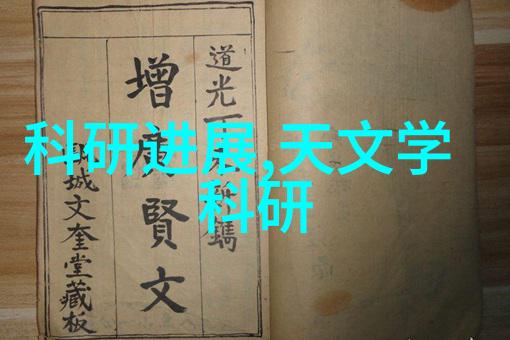 科研进展,天文学
科研
道光
新鐫
增廣賢文
城文奎堂藏板